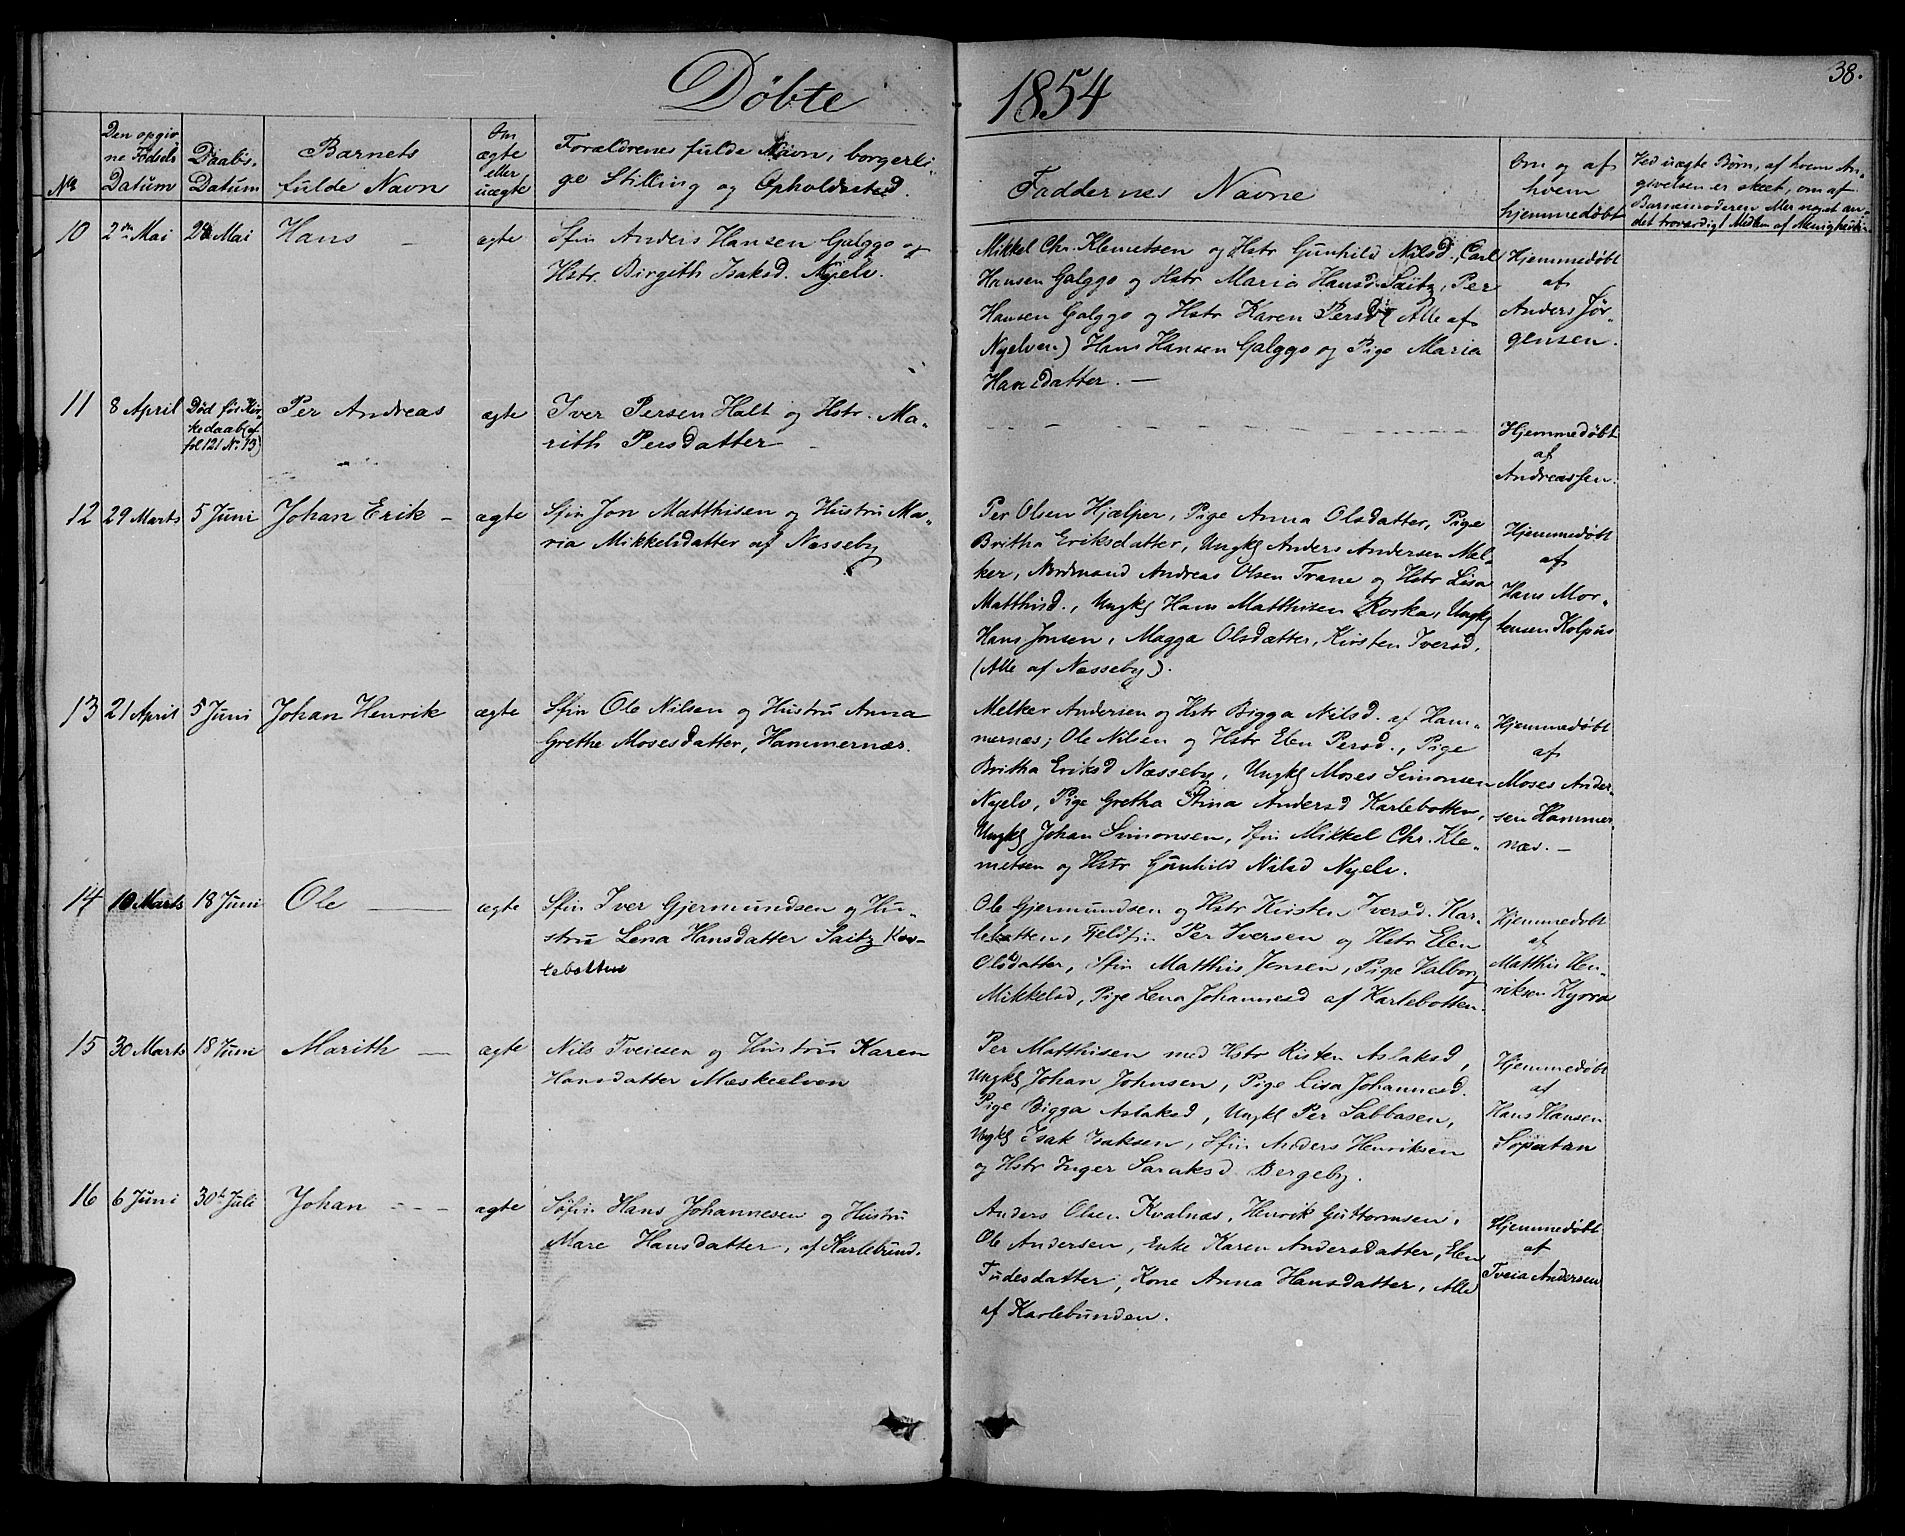 Döbte 1854
38.
No
Den opgiv
ne Fødsels
Datum
Daabs-
Datum
Barnets
fulde Navn
Om
ægte
eller
uægte
Forældrenes fulde Navn, borgerli-
ge Stilling og Opholdssted.
Faddernes Navne
Om og af
hvem
hjemmedøbt
Ved uægte Børn, af hvem An-
givelsen er skeet, om af
Barnemoderen eller noget an-
det troværdigt Medlem af Menigheden
10 2den Mai 28 Mai Hans - ægte
Sfin Anders Hansen Galggo og
Hstr. Birgith Isaksd. Nyelv.
Mikkel Chr. Klemetsen og Hstr Gunhild Nilsd., Carl
Hansen Galggo og Hstr Maria Hansd. Saitz, Per
Hansen Galggo og Hstr Karen Persd (Alle af
Nyelven) Hans Hansen Galggo og Pige Maria
Hansdatter. —
Hjemmedøbt
af
Anders Jør-
gensen.
11 8 April Død før Kir-
kedaab (cf
fol 121 No 13)
Per Andreas ægte
Iver Persen Halt og Hstr. Ma-
rith Persdatter
Hjemmedøbt
af
Andreassen.
12 29 Marts 5 Juni Johan Erik - ægte
Sfin Jon Matthisen og Hustru Ma-
ria Mikkelsdatter af Næsseby
Per Olsen Hjælper, Pige Anna Olsdatter, Pige
Britha Eriksdatter, Ungkl Anders Andersen Mel-
ker, Nordmand Andreas Olsen Trane og Hstr Lisa
Matthisd., Ungkl Hans Matthisen Rorka, Ungkl
Hans Jonsen, Magga Olsdatter, Kirsten Iversd,
(Alle af Næsseby).
Hjemmedøbt
af
Hans Mor-
tensen Kolpus
13 21 April 5 Juni Johan Henrik ægte
Sfin Ole Nilsen og Hustru Anna
Grethe Mosesdatter, Hammernæs.
Melker Andersen og Hstr Bigga Nilsd. af Ham-
mernæs; Ole Nilsen og Hstr Elen Persd., Pige
Britha Eriksd Næsseby, Ungkl Moses Simonsen
Nyelv, Pige Gretha Stina Andersd Karlebotten,
Ungkl Johan Simonsen, Sfin Mikkel Chr. Kle-
metsen og Hstr Gunhild Nilsd Nyelv.
Hjemmedøbt
af
Moses Ander-
sen Hammer-
næs. —
14 10 Marts 18 Juni Ole — ægte
Sfin Iver Gjermundsen og Hu-
stru Lena Hansdatter Saitz Kar-
lebotten
Ole Gjermundsen og Hstr Kirsten Iversd. Kar-
lebotten, Fjeldfin Per Iversen og Hstr Elen
Olsdatter, Sfin Matthis Jonsen, Pige Valborg
Mikkelsd, Pige Lena Johannesd af Karlebotten.
Hjemmedøbt
af
Matthis Hen-
riksen Kjora
15 30 Marts 18 Juni Marith — ægte
Nils Tveiesen og Hustru Karen
Hansdatter Mæskeelven
Per Matthisen med Hstr Risten Aslaksd,
Ungkl Johan Johnsen, Pige Lisa Johannesd.
Pige Bigga Aslaksd, Ungkl Per Sabbasen,
Ungkl Isak Isaksen, Sfin Anders Henriksen
og Hstr Inger Saraksd Bergeby.
Hjemmedøbt
af
Hans Hansen
Sopatan
16 6 Juni 30t Juli Johan - - - ægte
Søfin Hans Johannesen og Hustru
Mare Hansdatter, af Karlebund.
Anders Olsen Kvalnæs, Henrik Guttormsen,
Ole Andersen, Enke Karen Andersdatter, Elen
Tudesdatter, Kone Anna Hansdatter, Alle
af Karlebunden.
Hjemmedøbt
af
Tveia Andersen